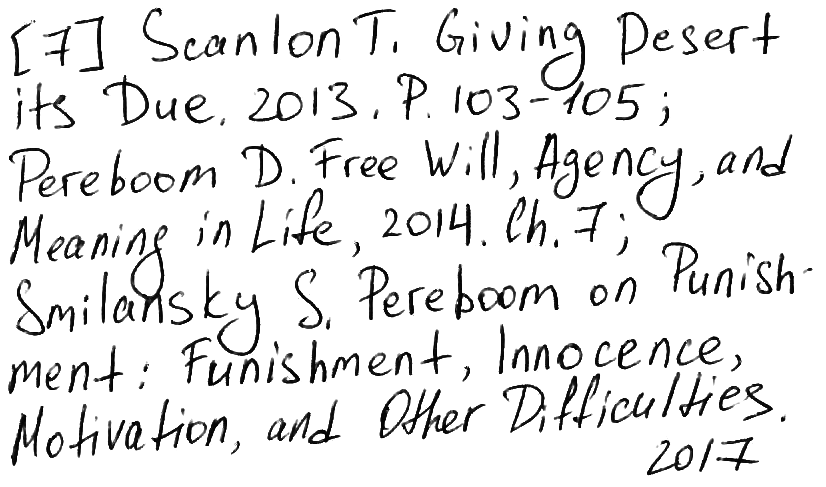 [7] Scanlon T. Giving Desert
its Due. 2013. P. 103-105;
Pereboom D. Free Will, Agency, and
Meaning in Life, 2014. Ch. 7;
Smilansky S. Pereboom on Punish-
ment: Funishment, Innocence,
Motivation, and Other Difficulties.
2017